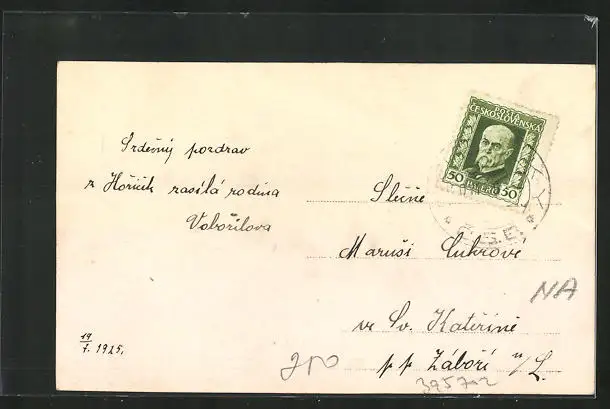 Srdečný pozdrav
z Hořicih zasílá rodina
Vobořilova
19
7. 1925.
POŠTA
ČESKOSLOVENSKÁ
50 HALÉŘŮ 50
Slečně
Maruši Cukrové
ve Sv. Kateřině
p p Záboří n/L.
NA
200